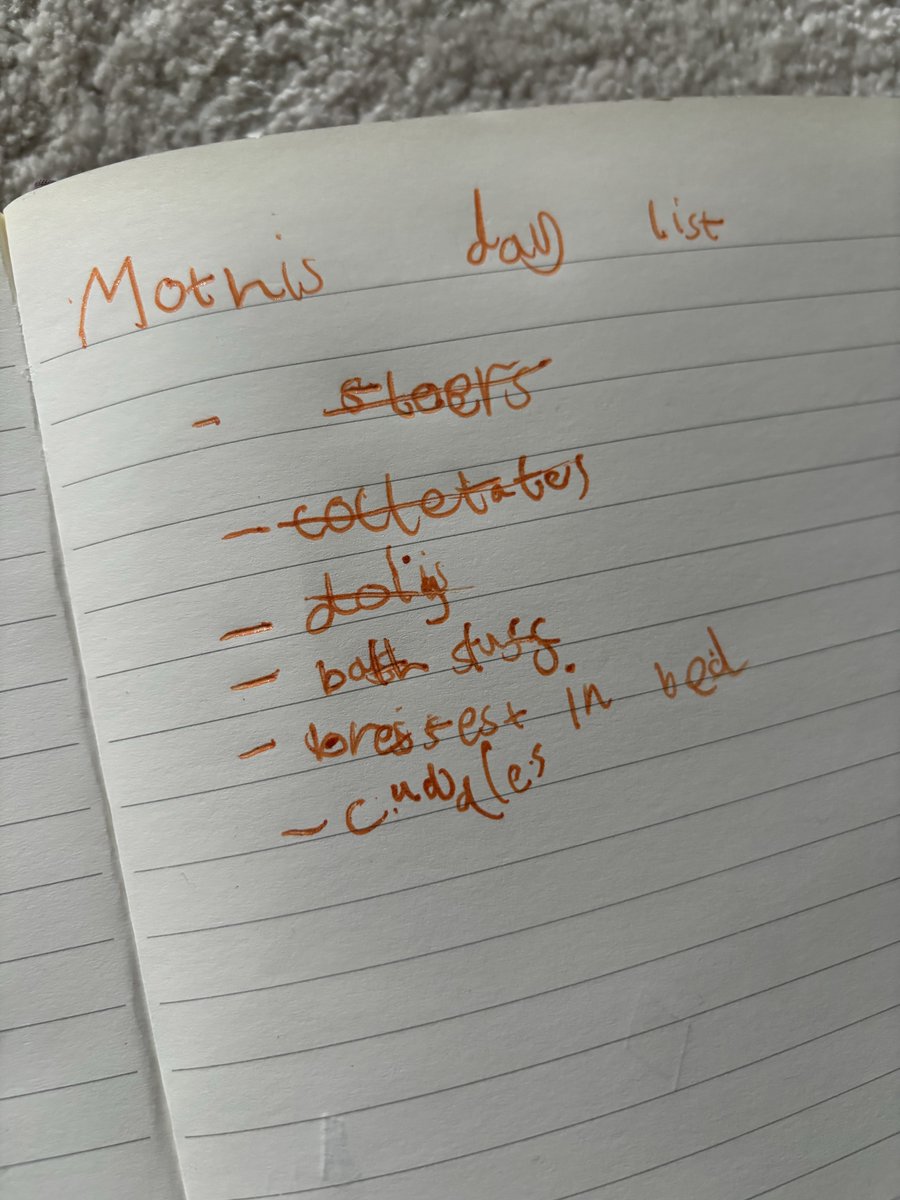 Mothis day list
- sloers
- colletates
- dolys
- bath stuff.
- bresfest in bed
- cuddles